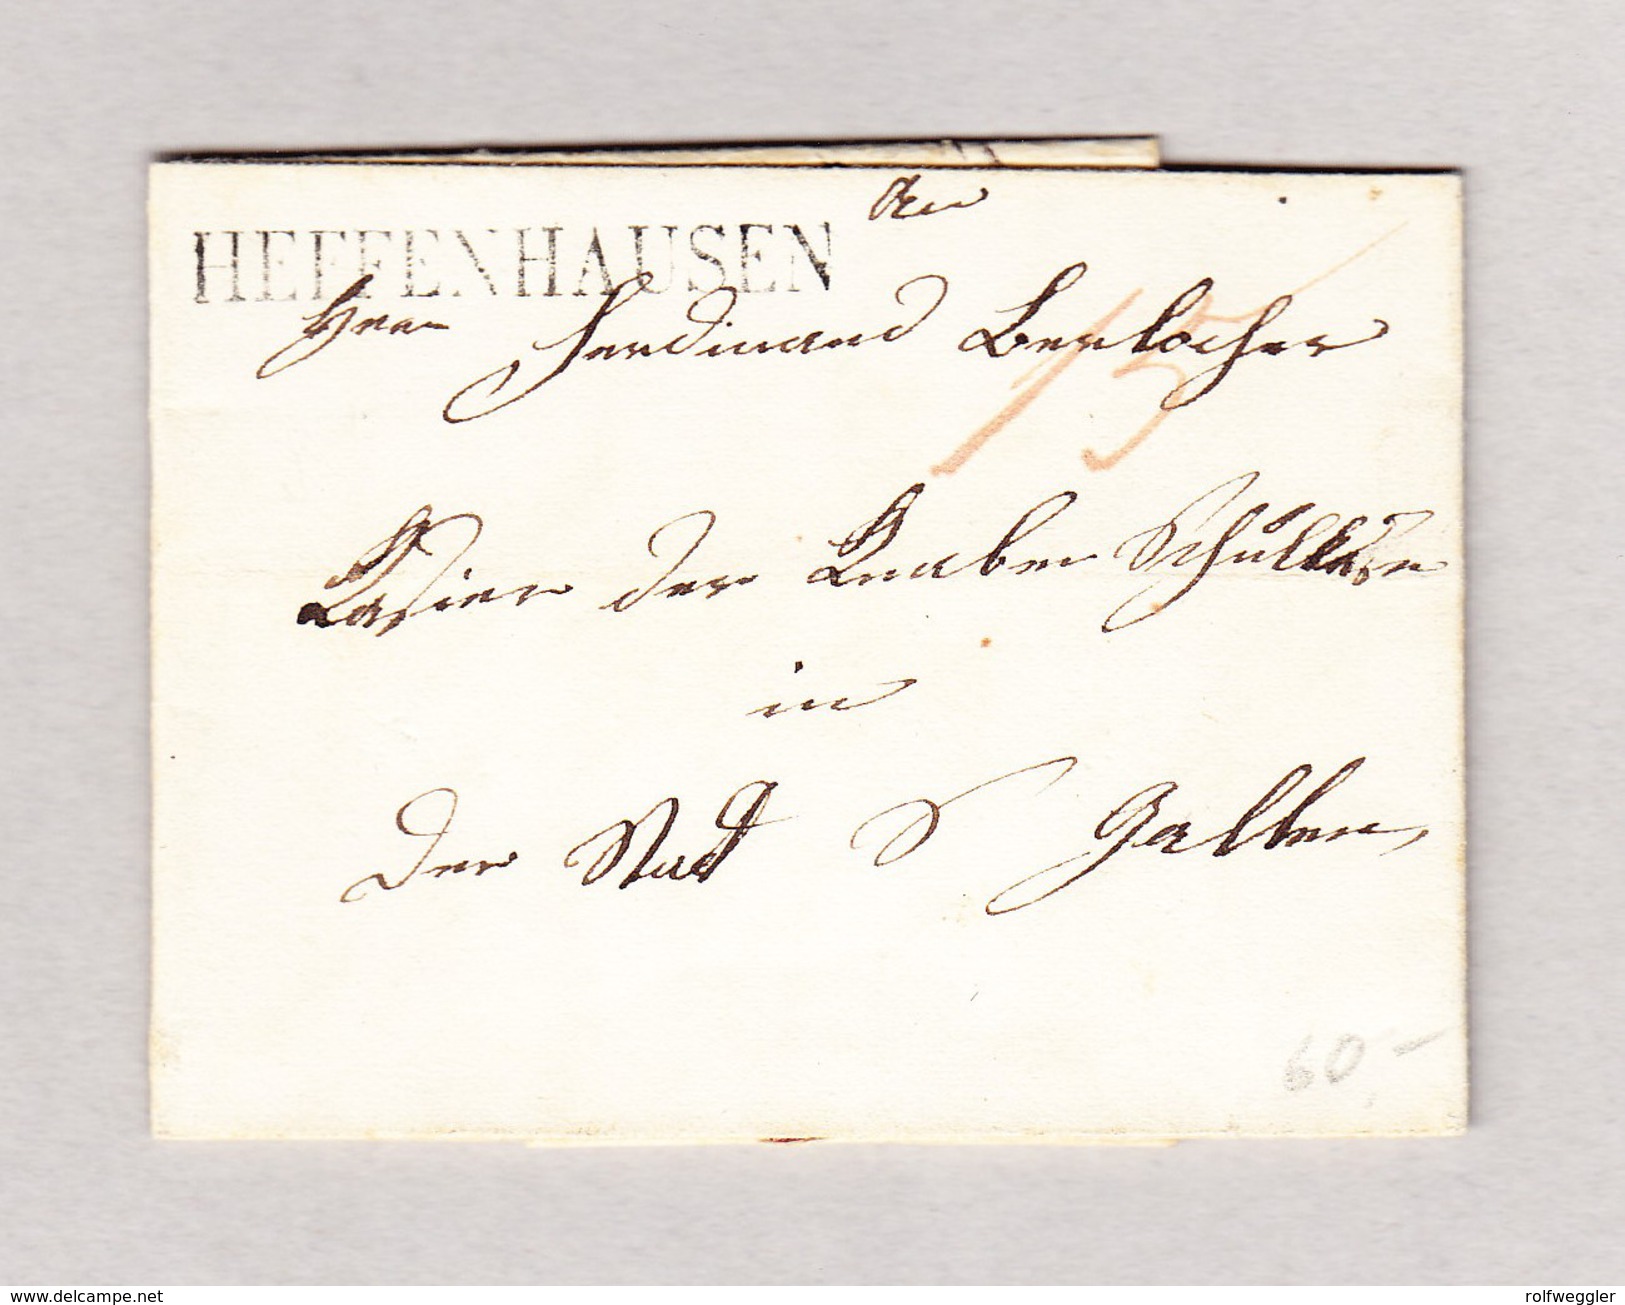 An
HEFFENHAUSEN
Herrn Ferdinand Berlocher
15
Kasier der Knaben Schulle
in
der Stadt St Gallen
60.-
www.delcampe.net
rolfweggler